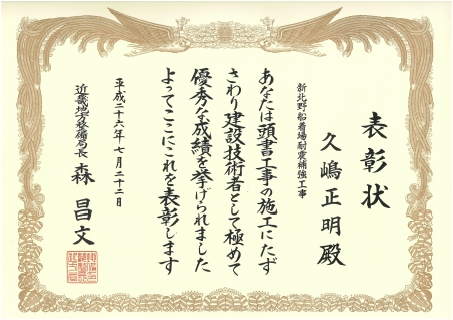 表彰状
久嶋正明殿
新北野船着場耐震補強工事
あなたは頭書工事の施工にたず
さわり建設技術者として極めて
優秀な成績を挙げられました
よってここにこれを表彰します
平成二十六年七月二十二日
近畿地方整備局長 森昌文